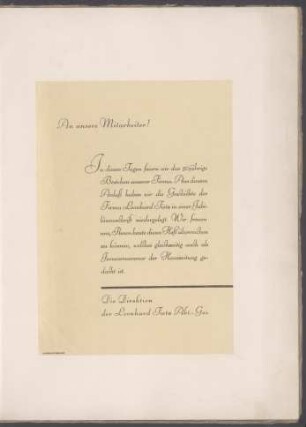 An unsere Mitarbeiter!
In diesen Tagen feiern wir das 50jährige
Bestehen unserer Firma. Aus diesem
Anlaß haben wir die Geschichte der
Firma Leonhard Tietz in einer Jubi-
läumsschrift niedergelegt. Wir freuen
uns, Ihnen heute dieses Heft überreichen
zu können, welches gleichzeitig auch als
Sondernummer der Hauszeitung ge-
dacht ist.
Die Direktion
der Leonhard Tietz Akt.-Ges.